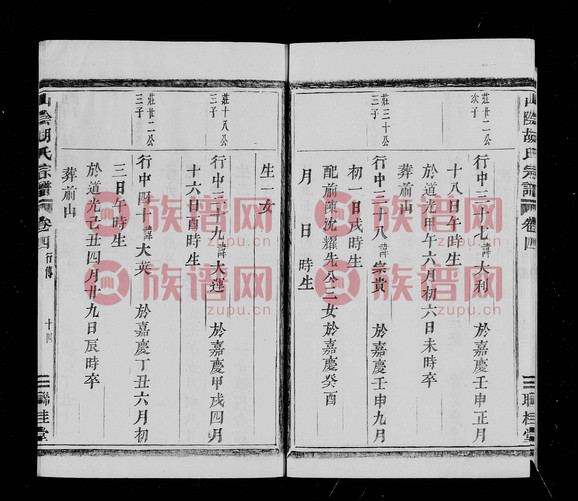 山陰胡氏宗譜 卷四
聯桂堂
莊廿二公
次子
行中三十七諱大利 於嘉慶壬申正月
十八日午時生
於道光甲午六月初六日未時卒
葬前山
莊三十公
三子
行中三十八諱宗貴 於嘉慶壬申九月
初一日戌時生
配前陳沈耀先公三女於嘉慶癸酉
月 日 時生
生一女
莊十八公
三子
行中三十九諱大運 於嘉慶甲戌四月
十六日酉時生
莊廿二公
三子
行中四十諱大英 於嘉慶丁丑六月初
三日午時生
於道光乙丑四月廿九日辰時卒
葬前山
山陰胡氏宗譜 卷四 行傳 十四
聯桂堂
族谱网
zupu.cn
族谱网
zupu.cn
族谱网
zupu.cn
族谱网
zupu.cn